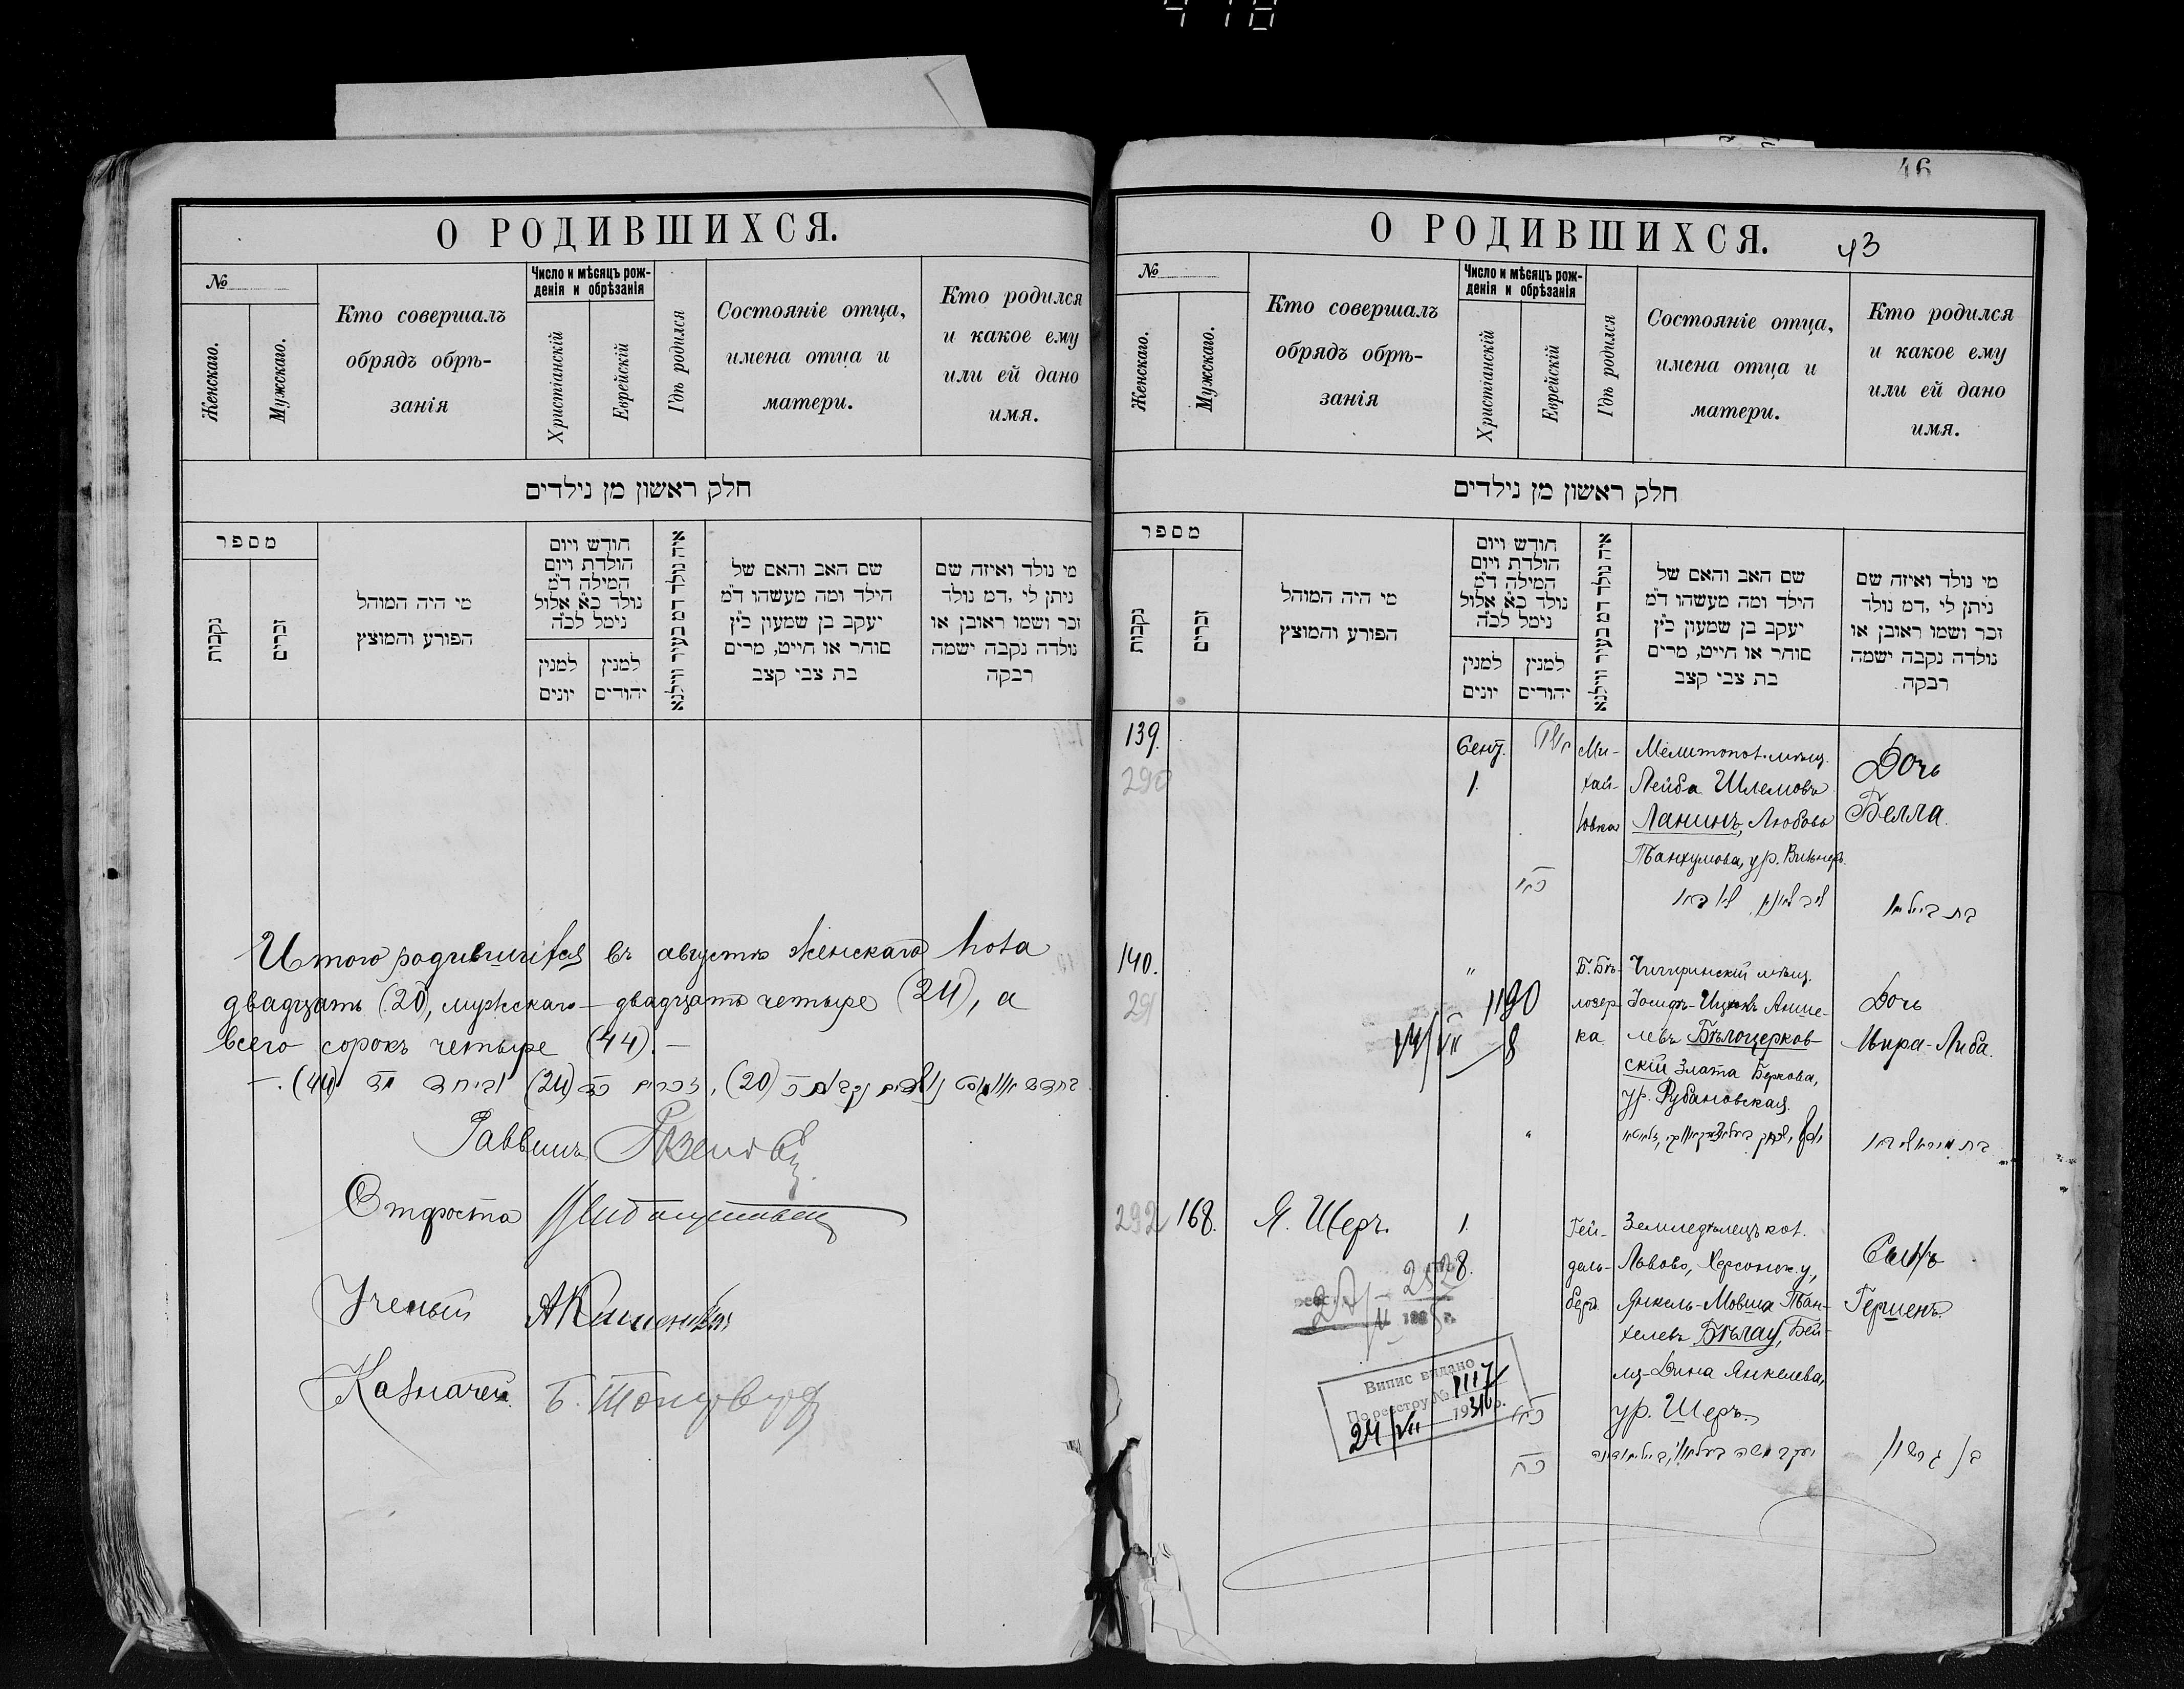 418
О РОДИВШИХСЯ.
№
Женскаго.
Мужскаго.
Кто совершалъ
обрядъ обрѣ-
занія
Число и мѣсяцъ рож-
денія и обрѣзанія
Христіанскій
Еврейскій
Гдѣ родился
Состояніе отца,
имена отца и
матери.
Кто родился
и какое ему
или ей дано
имя.
חלק ראשון מן נילדים
מספר
נקבות
זכרים
מי היה המוהל
הפורע והמוצץ
חודש ויום
הולדת ויום
המילה ד"מ
נולד כ"א אלול
נימל לכ"ה
למנין
יונים
למנין
יהודים
איה נולד דמ בעיר ווילנא
שם האב והאם של
הילד ומה מעשהו ד"מ
יעקב בן שמעון כ"ץ
סוחר או חייט, מרים
בת צבי קצב
מי נולד ואיזה שם
ניתן לי ,דמ נולד
זכר ושמו ראובן או
נולדה נקבה ישמה
רבקה
Итого родившихся въ августѣ женскаго пола
двадцать (20), мужскаго – двадцать четыре (24), а
всего сорокъ четыре (44). –
Раввинъ
Староста
Ученый
Казначей
46
О РОДИВШИХСЯ. 43
№
Женскаго.
Мужскаго.
Кто совершалъ
обрядъ обрѣ-
занія
Число и мѣсяцъ рож-
денія и обрѣзанія
Христіанскій
Еврейскій
Гдѣ родился
Состояніе отца,
имена отца и
матери.
Кто родился
и какое ему
или ей дано
имя.
חלק ראשון מן נילדים
מספר
נקבות
זכרים
מי היה המוהל
הפורע והמוצץ
חודש ויום
הולדת ויום
המילה ד"מ
נולד כ"א אלול
נימל לכ"ה
למנין
יונים
למנין
יהודים
איה נולד דמ בעיר ווילנא
שם האב והאם של
הילד ומה מעשהו ד"מ
יעקב בן שמעון כ"ץ
סוחר או חייט, מרים
בת צבי קצב
מי נולד ואיזה שם
ניתן לי ,דמ נולד
זכר ושמו ראובן או
נולדה נקבה ישמה
רבקה
139.
290
Сент.
1.
Ми-
хай-
ловка
Мелитопол. мѣщ.
Лейба Шлемовъ
Ланинъ, Любовь
Танхумова, ур.
Дочь
Белла.
140.
291
"
1190
Б. Бѣ-
лозер-
ка
Чигиринскій мѣщ.
Іосифъ-Ицхокъ Анше-
левъ Бѣлоцерков-
скій Злата Беркова,
ур. Рубановская.
Дочь
Мира-Либа.
292
168.
Я. Шеръ.
1.
8.
Гей-
дель-
берг.
Земледѣлецъ кол.
Львово, Херсонск. у,
Янкель-Мовша
Бѣлау, Бей-
ля-Дина Янкелева,
ур. Шеръ.
Сынъ
Гершенъ.
Випис видано
По реєстру № 1117
24/VII 1936 р.